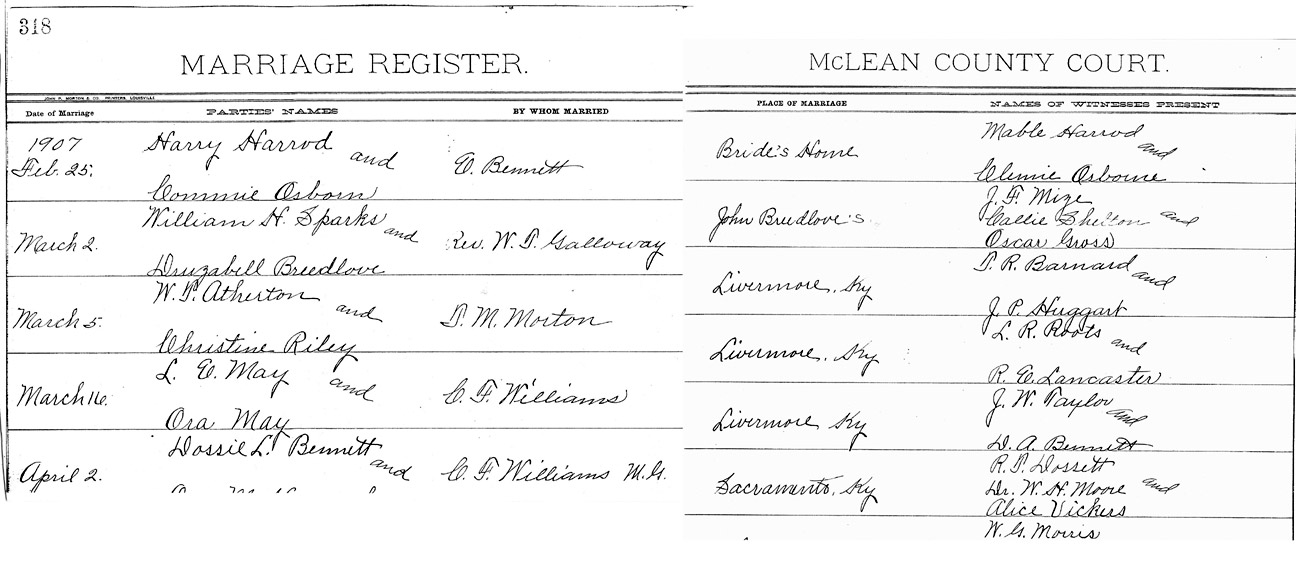 318
MARRIAGE REGISTER.
JOHN P. MORTON & CO. PRINTERS, LOUISVILLE
Date of Marriage PARTIES' NAMES BY WHOM MARRIED
1907
Feb. 25. Harry Harrod and E. Bennett
Commie Osborn
March 2. William H. Sparks and Rev. W. T. Galloway
Druzabell Breedlove
March 5. W. T. Atherton and T. M. Morton
Christine Riley
March 16. L. E. May and C. F. Williams
Ora May
April 2. Dossie L. Bennett and C. F. Williams M.G.
McLEAN COUNTY COURT.
PLACE OF MARRIAGE NAMES OF WITNESSES PRESENT
Bride's Home Mable Harrod and
Clemie Osborne
John Breedlove's J. F. Mize
Callie Shelton and
Oscar Gross
Livermore, Ky T. R. Barnard and
J. P. Huggart
Livermore, Ky L. R. Roots and
R. E. Lancaster
Livermore Ky J. W. Taylor and
D. A. Bennett
Sacramento, Ky R. T. Dossett
Dr. W. H. Moore and
Alice Vickers
W. G. Morris